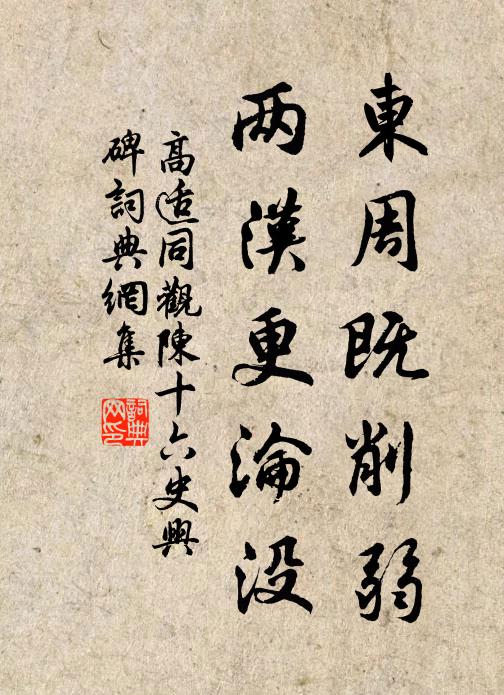 東周既削弱
两漢更淪没
高适同觀陳十六史興
碑詞典網集
詞典网印